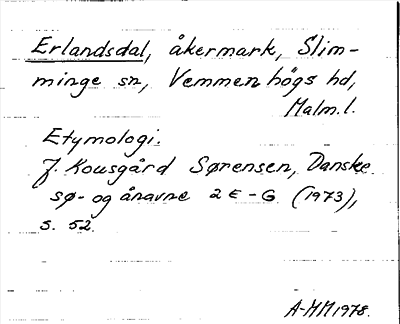 Erlandsdal, åkermark, Slim-
minge sn, Vemmenhögs hd,
Malm.l.
Etymologi.
J. Kousgård Sørensen, Danske
sø- og ånavne 2 E-G (1973),
s. 52.
A-MM 1978.